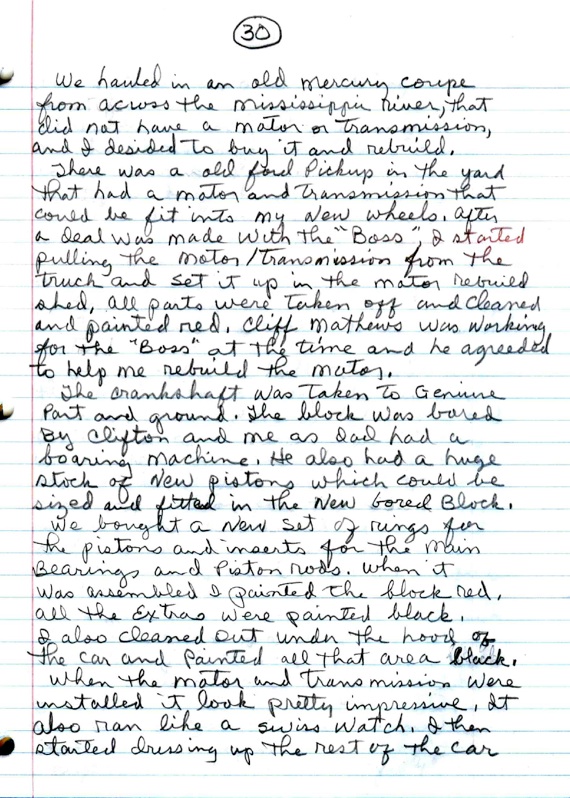 30
We hauled in an old mercury coupe
from across the mississippi river, that
did not have a motor or transmission,
and I desided to buy it and rebuild.
There was a old ford Pickup in the yard
that had a motor and transmission that
could be fit into my New wheels. After
a deal was made with the "Boss" I started
pulling the motor/transmission from the
truck and set it up in the motor rebuild
shed, all parts were taken off and cleaned
and painted red. Cliff Mathews was working
for the "Boss" at the time and he agreeded
to help me rebuild the motor.
The crankshaft was taken to Genuine
Part and ground. The block was bored
By Clifton and me as Dad had a
boaring machine. He also had a huge
stock of New pistons which could be
sized and fitted in the New bored Block.
We bought a New set of rings for
the pistons and inserts for the main
Bearings and Piston rods. When it
was assembled I painted the block red,
all the Extras were painted black.
I also cleaned out under the hood of
the car and painted all that area black.
When the motor and transmission were
installed it look pretty impressive, It
also ran like a swiss watch. I then
started dressing up the rest of the car